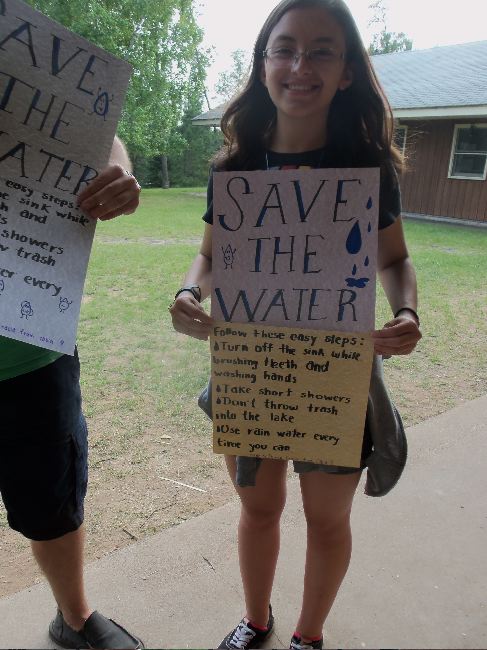 SAVE
THE
WATER
easy steps:
sink while
and
showers
trash
every
SAVE
THE
WATER
Follow these easy steps:
Turn off the sink while
brushing teeth and
washing hands
Take short showers
Don't throw trash
into the lake
Use rain water every
time you can